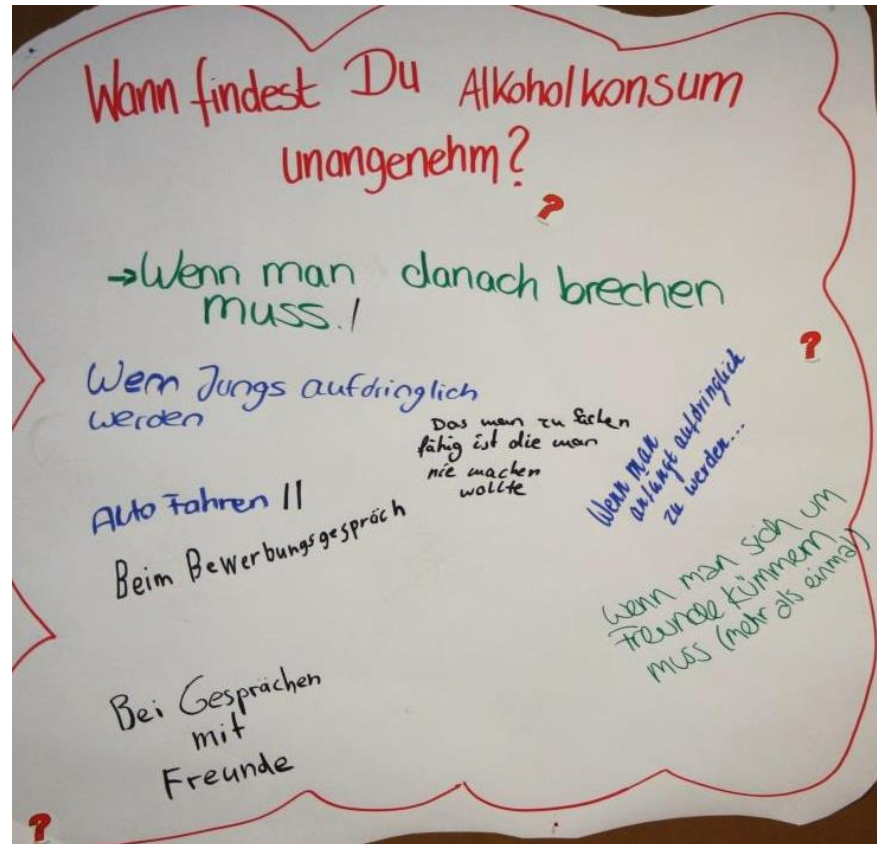 Wann findest Du Alkoholkonsum
unangenehm?
?
→Wenn man danach brechen
muss./
?
Wenn Jungs aufdringlich
werden
Das man zu Sachen
fähig ist die man
nie machen
wollte
Wenn man
anfängt aufdringlich
zu werden...
Auto Fahren ||
Beim Bewerbungsgespräch
Wenn man sich um
Freunde kümmern
muss (mehr als einmal)
Bei Gesprächen
mit
Freunde
?